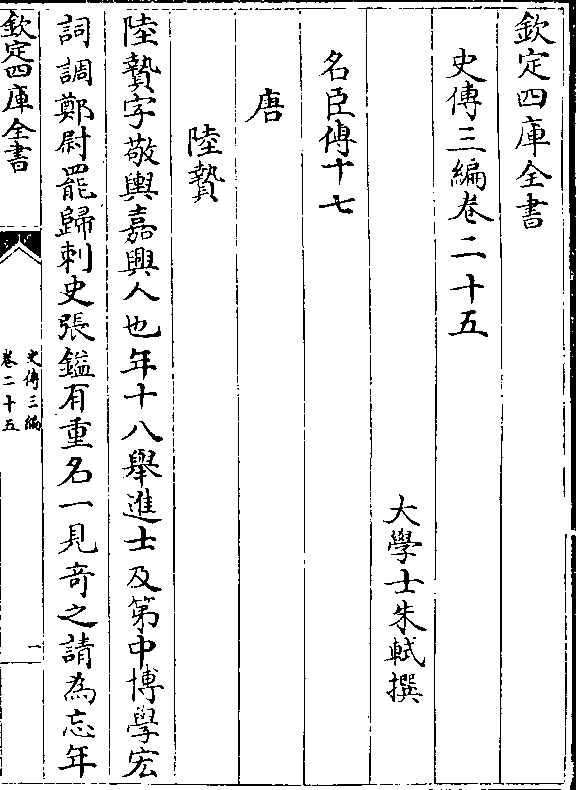 欽定四庫全書
史傳三編卷二十五
大學士朱軾撰
名臣傳十七
唐
陸贄
陸贄字敬輿嘉興人也年十八舉進士及第中博學宏
詞調鄭尉罷歸刺史張鎰有重名一見竒之請為忘年
欽定四庫全書
史傳三編
卷二十五
一